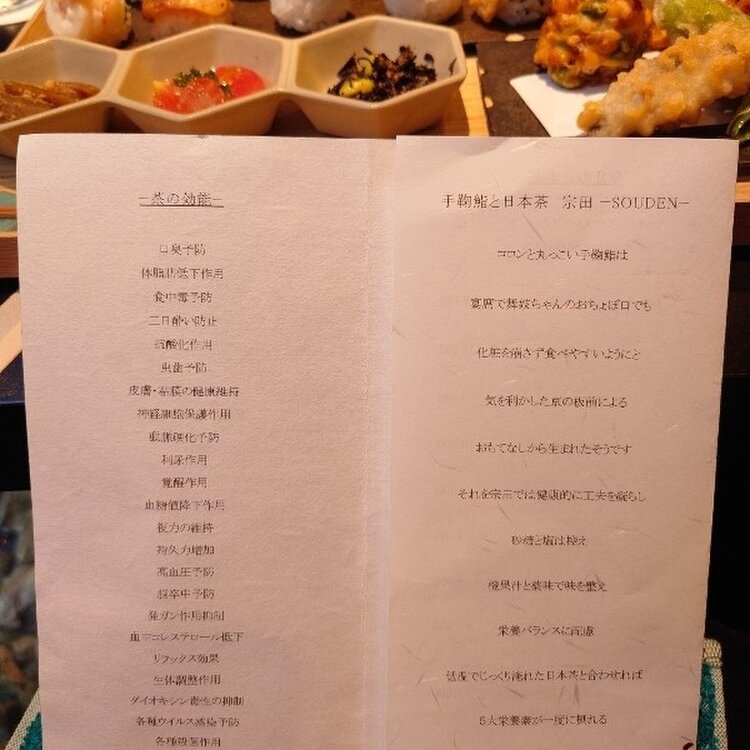 −茶の効能−
口臭予防
体脂肪低下作用
食中毒予防
二日酔い防止
抗酸化作用
虫歯予防
皮膚・粘膜の健康維持
神経細胞保護作用
動脈硬化予防
利尿作用
覚醒作用
血糖値降下作用
視力の維持
持久力増加
高血圧予防
脳卒中予防
発ガン作用抑制
血中コレステロール低下
リラックス効果
生体調整作用
ダイオキシン毒性の抑制
各種ウイルス感染予防
各種殺菌作用
手鞠鮨と日本茶 宗田 −SOUDEN−
コロンと丸っこい手鞠鮨は
宴席で舞妓ちゃんのおちょぼ口でも
化粧を崩さず食べやすいようにと
気を利かした京の板前による
おもてなしから生まれたそうです
それを宗田では健康的に工夫を凝らし
砂糖と塩は控え
橙果汁と薬味で味を整え
栄養バランスに配慮
低温でじっくり淹れた日本茶と合わせれば
5大栄養素が一度に摂れる